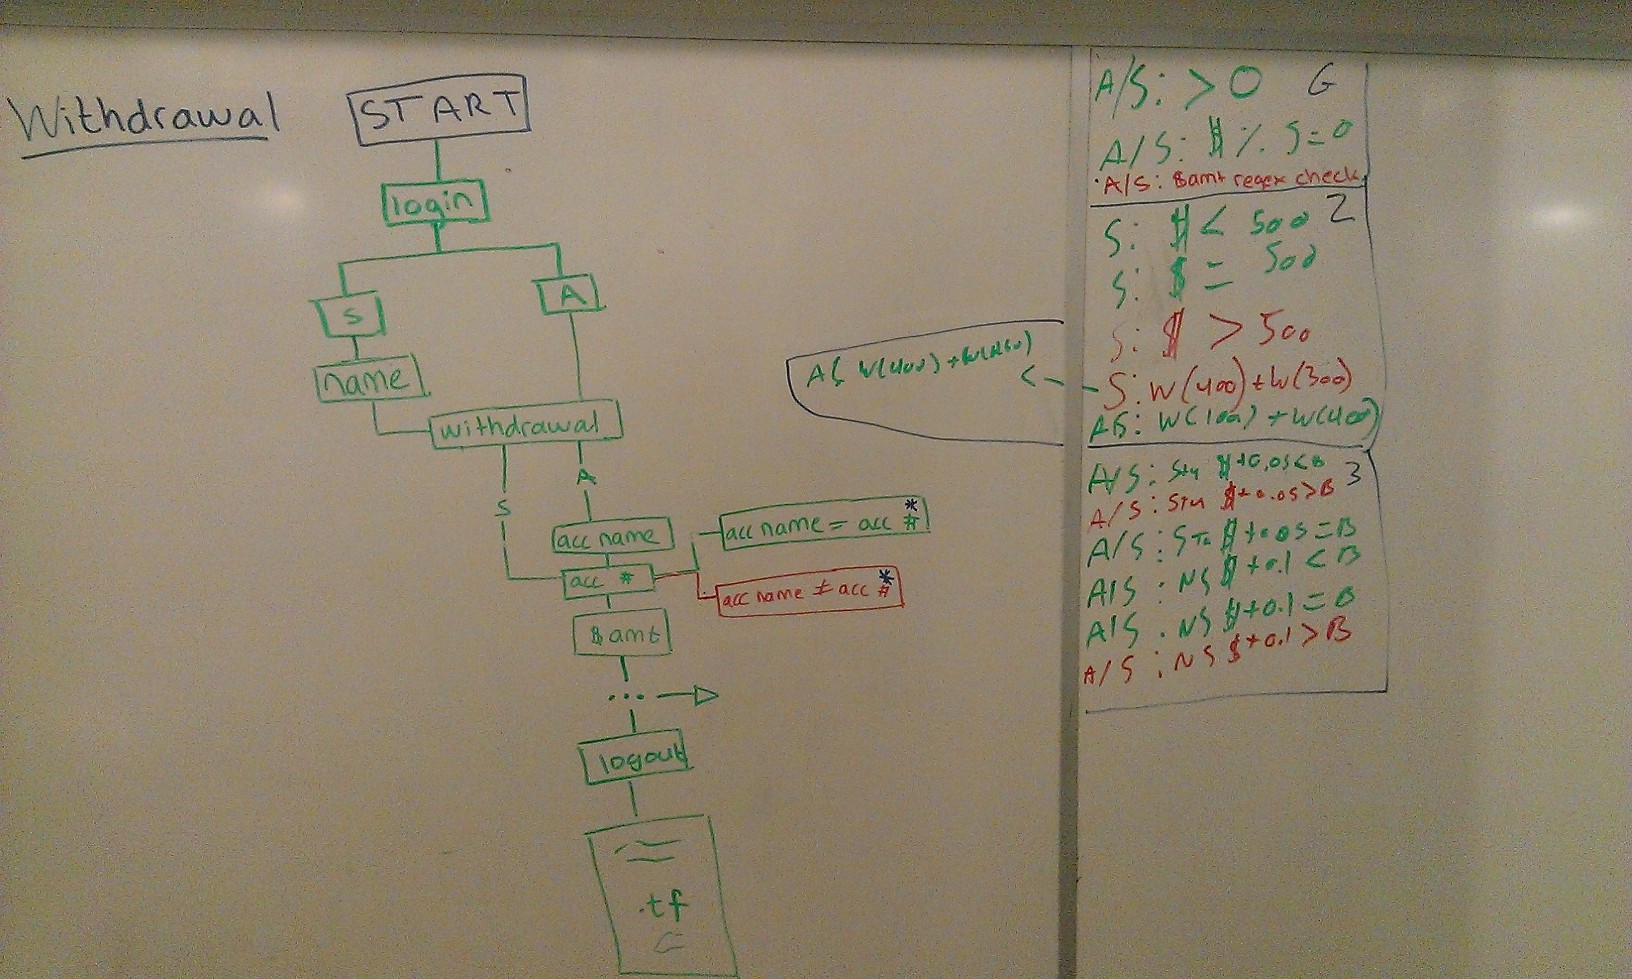 Withdrawal
START
login
S
A
name
withdrawal
S
A
acc name
acc #
acc name = acc #
*
acc name ≠ acc #
*
$ amt
...
logout
.tf
A/S: > 0 G
A/S: $ % 5 = 0
A/S: $amt regex check
S: $ < 500 2
S: $ = 500
S: $ > 500
S: W(400) + W(300)
W(100) + W(400)
W(400) +
A/S: Stu $ + 0.05 < B 3
A/S: Stu $ + 0.05 > B
A/S: Stu $ + 0.05 = B
A/S: NS $ + 0.1 < B
A/S: NS $ + 0.1 = B
A/S: NS $ + 0.1 > B